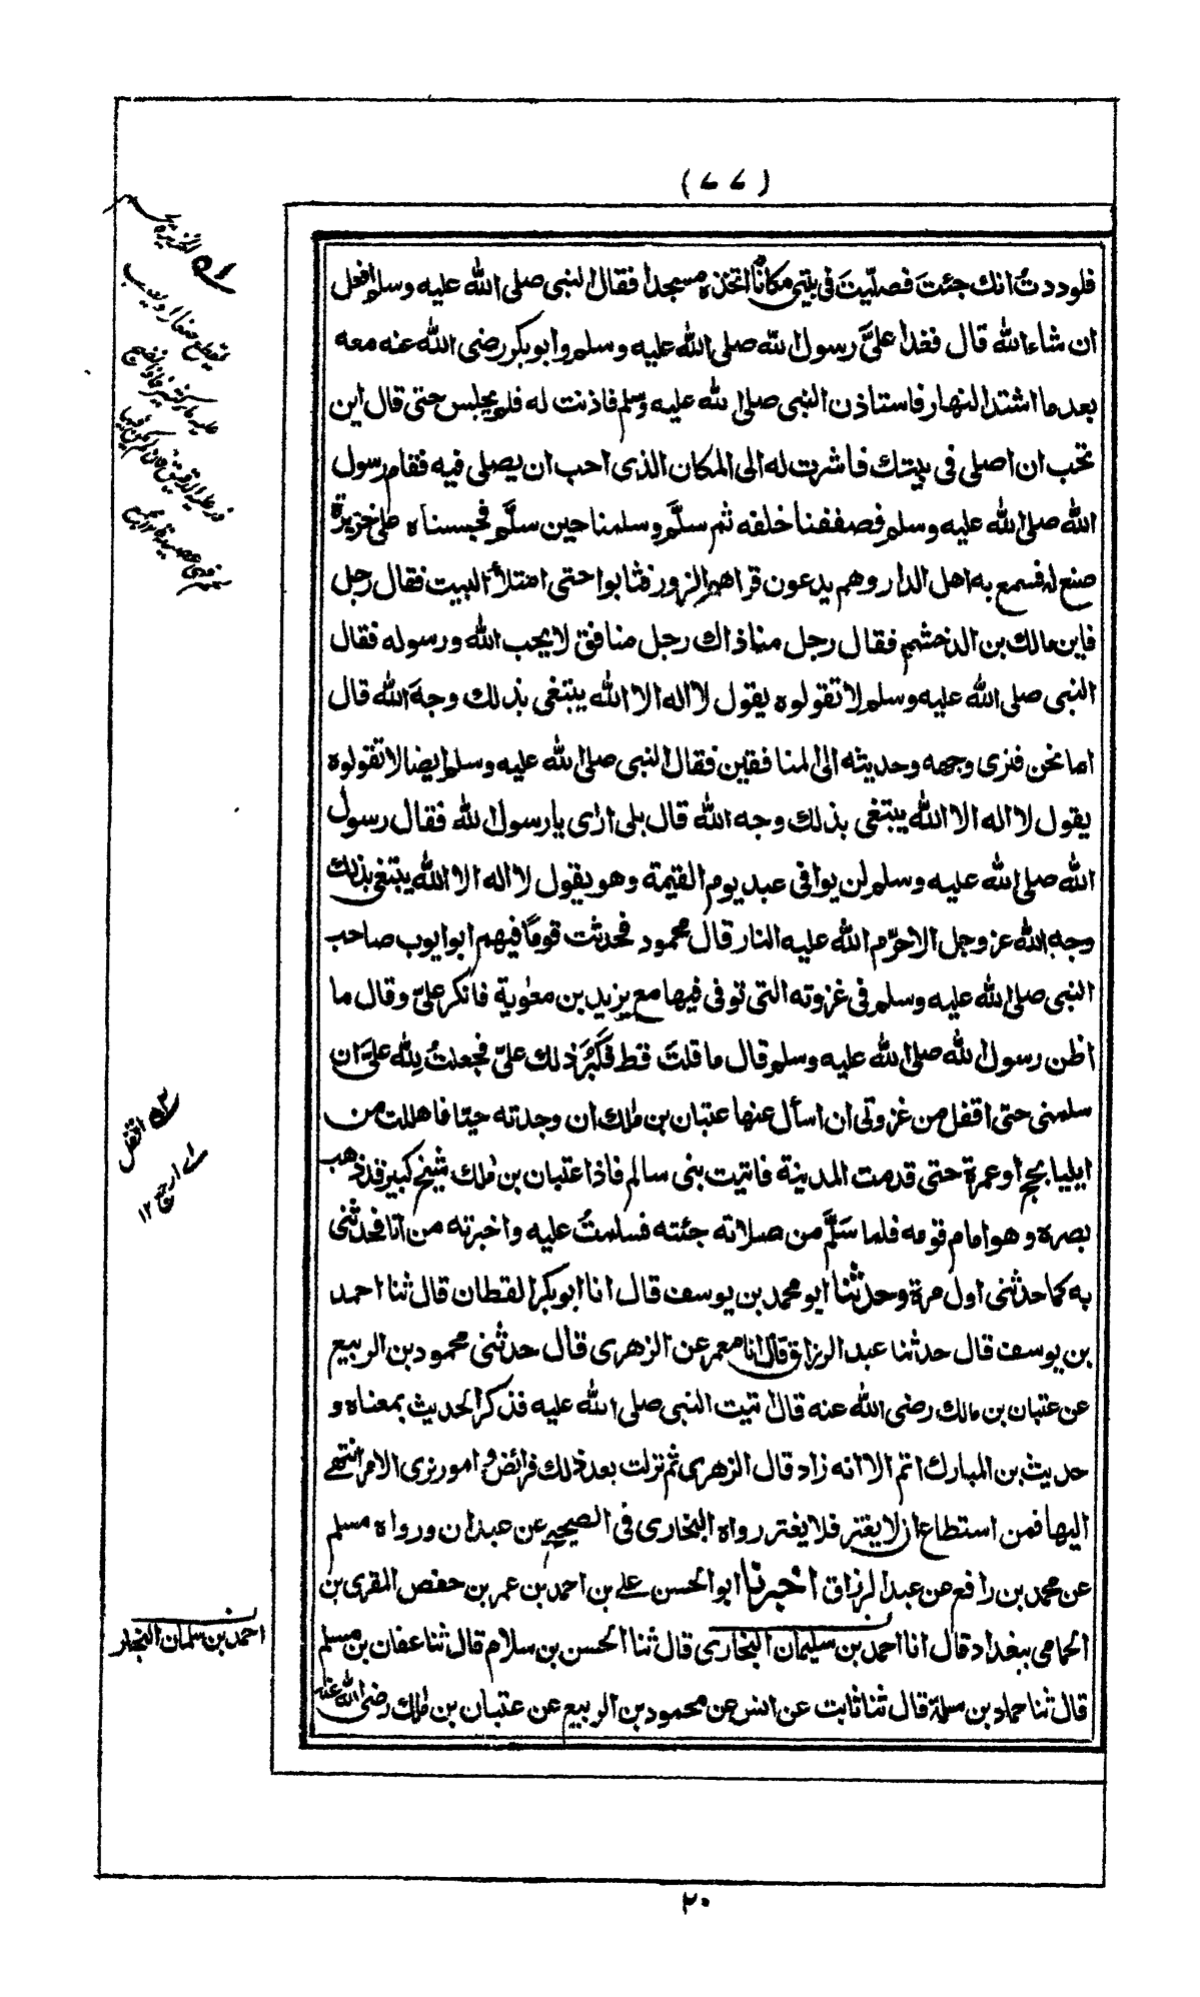 (٧٧)
فلوددتُ انك جئتَ فصلّيتَ فى بيتى مكانًا اتخذه مسجدا فقال النبى صلى الله عليه وسلم أفعل
ان شاء الله قال فغدا علىَّ رسول الله صلى الله عليه وسلم وابو بكر رضى الله عنه معه
بعد ما اشتد النهار فاستاذن النبى صلى الله عليه وسلم فاذنت له فلم يجلس حتى قال اين
تحب ان اصلى فى بيتك فاشرت له الى المكان الذى احب ان يصلى فيه فقام رسول
الله صلى الله عليه وسلم فصففنا خلفه ثم سلَّم وسلمنا حين سلَّم فحبسناه على خزيرة
صنع له فسمع به اهل الدار وهم يدعون قراهم الزور فثابوا حتى امتلأ البيت فقال رجل
فاين مالك بن الدخشم فقال رجل منا ذاك رجل منافق لا يحب الله ورسوله فقال
النبى صلى الله عليه وسلم لا تقولوه يقول لا اله الا الله يبتغى بذلك وجهَ الله قال
اما نحن فنرى وجهه وحديثه الى المنافقين فقال النبى صلى الله عليه وسلم ايضا لا تقولوه
يقول لا اله الا الله يبتغى بذلك وجه الله قال بلى ارى يا رسول الله فقال رسول
الله صلى الله عليه وسلم لن يوافى عبد يوم القيمة وهو يقول لا اله الا الله يبتغى بذلك
وجه الله عز وجل الا حرّم الله عليه النار قال محمود فحدثت قومًا فيهم ابو ايوب صاحب
النبى صلى الله عليه وسلم فى غزوته التى توفى فيها مع يزيد بن معوية فانكر علىّ وقال ما
اظن رسول الله صلى الله عليه وسلم قال ما قلتَ قط فكَبُرَ ذلك علىّ فجعلتُ لله علىَّ ان
سلمنى حتى اقفل من غزوتى ان اسأل عنها عتبان بن ملك ان وجدته حيّا فاهللت من
ايليا بحج او عمرة حتى قدمت المدينة فاتيت بنى سالم فاذا عتبان بن ملك شيخ كبير قد ذهب
بصره وهو امام قومه فلما سَلَّم من صلاته جئته فسلمتُ عليه واخبرته من انا فحدثنى
به كما حدثنى اول مرة وحدثنا ابو محمد بن يوسف قال انا ابو بكر القطان قال ثنا احمد
بن يوسف قال حدثنا عبد الرزاق قال انا معمر عن الزهرى قال حدثنى محمود بن الربيع
عن عتبان بن مالك رضى الله عنه قال اتيت النبى صلى الله عليه فذكر الحديث بمعناه و
حديث بن المبارك اتم الا انه زاد قال الزهرى ثم نزلت بعد ذلك فرائض و امور نرى الامر انتهى
اليها فمن استطاع ان لا يغتر فلا يغتر رواه البخارى فى الصحيح عن عبدان ورواه مسلم
عن محمد بن رافع عن عبد الرزاق اخبرنا ابو الحسن على بن احمد بن عمر بن حفص المقرى بن
الحامى ببغداد قال انا احمد بن سليمان البخارى قال ثنا الحسن بن سلام قال ثنا عفان بن مسلم
قال ثنا حماد بن سلمة قال ثنا ثابت عن انس عن محمود بن الربيع عن عتبان بن ملك رضى الله عنه
اقفل
اى ارجع ١٢
احمد بن سلمان النجار
٢٠